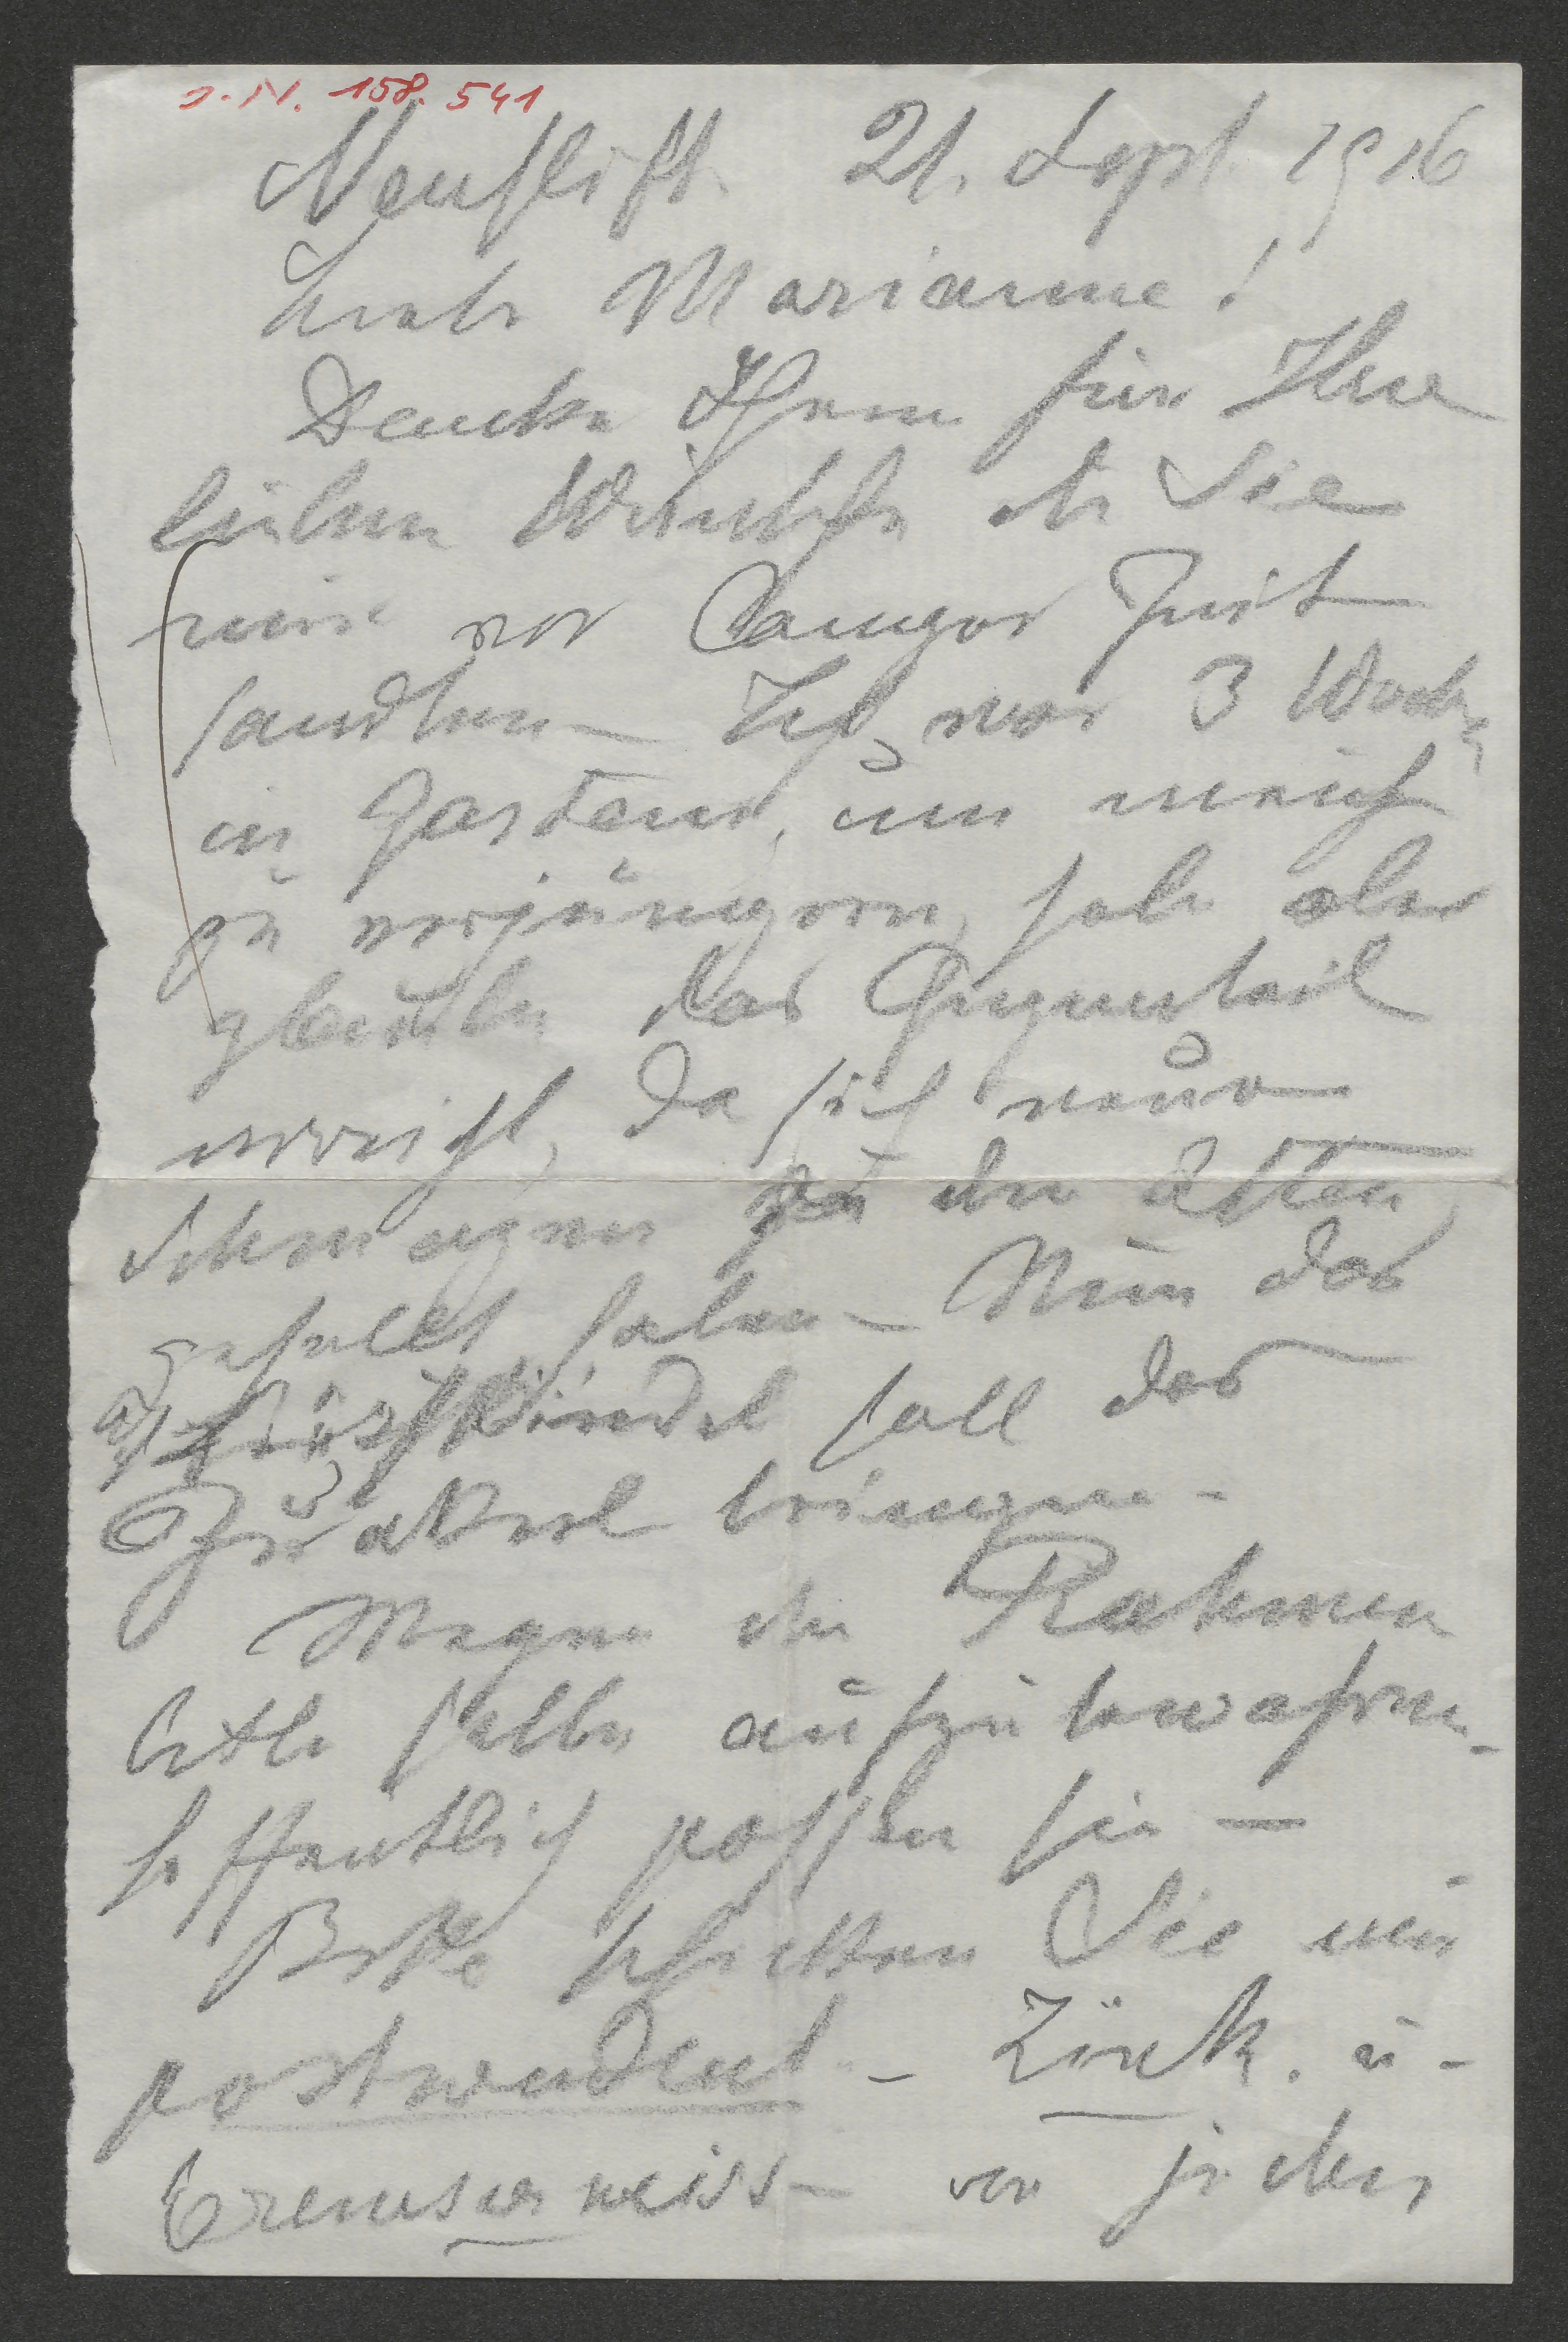 J.N. 158.541
Neustift 21. Sept. 1916
Liebe Marianne!
Danke Ihnen für Ihre
lieben Wünsche die Sie
mir vor langer Zeit
sandten – Ich war 3 Wochen
in Gastein, um mich
zu verjüngern, habe aber
glaube das Gegenteil
erreicht, da sich neue
Schmerzen zu den alten
gesellt haben – Nun das
Christkindel soll das
bringen –
Wegen der Rahmen
bitte selbe aufzubewahren –
hoffentlich passen sie –
Bitte schicken Sie mir
postwendend – Zink. u –
Cremserweiss – von jeder